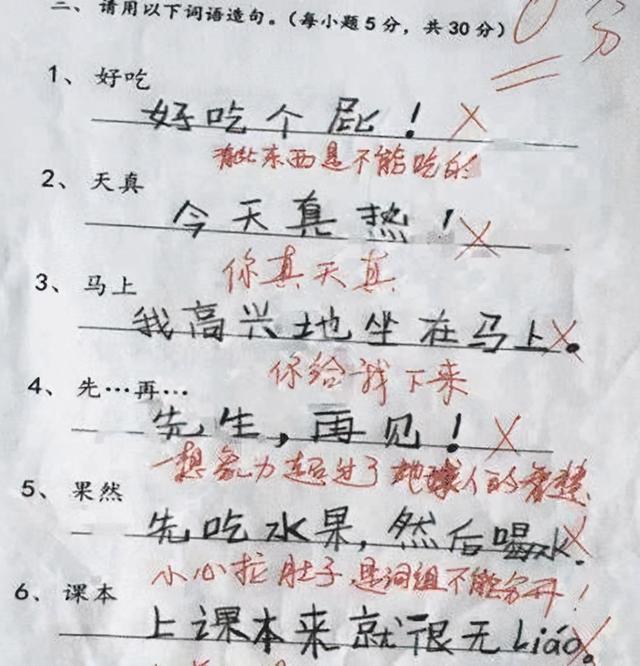 二、请用以下词语造句。（每小题5分，共30分）
分
1、好吃
好吃个屁！
有些东西是不能吃的
2、天真
今天真热！
你真天真
3、马上
我高兴地坐在马上。
你给我下来
4、先…再…
先生，再见！
想象力超过了地球人的智慧
5、果然
先吃水果，然后喝水。
小心拉肚子，是词组不能分开！
6、课本
上课本来就很无liáo。